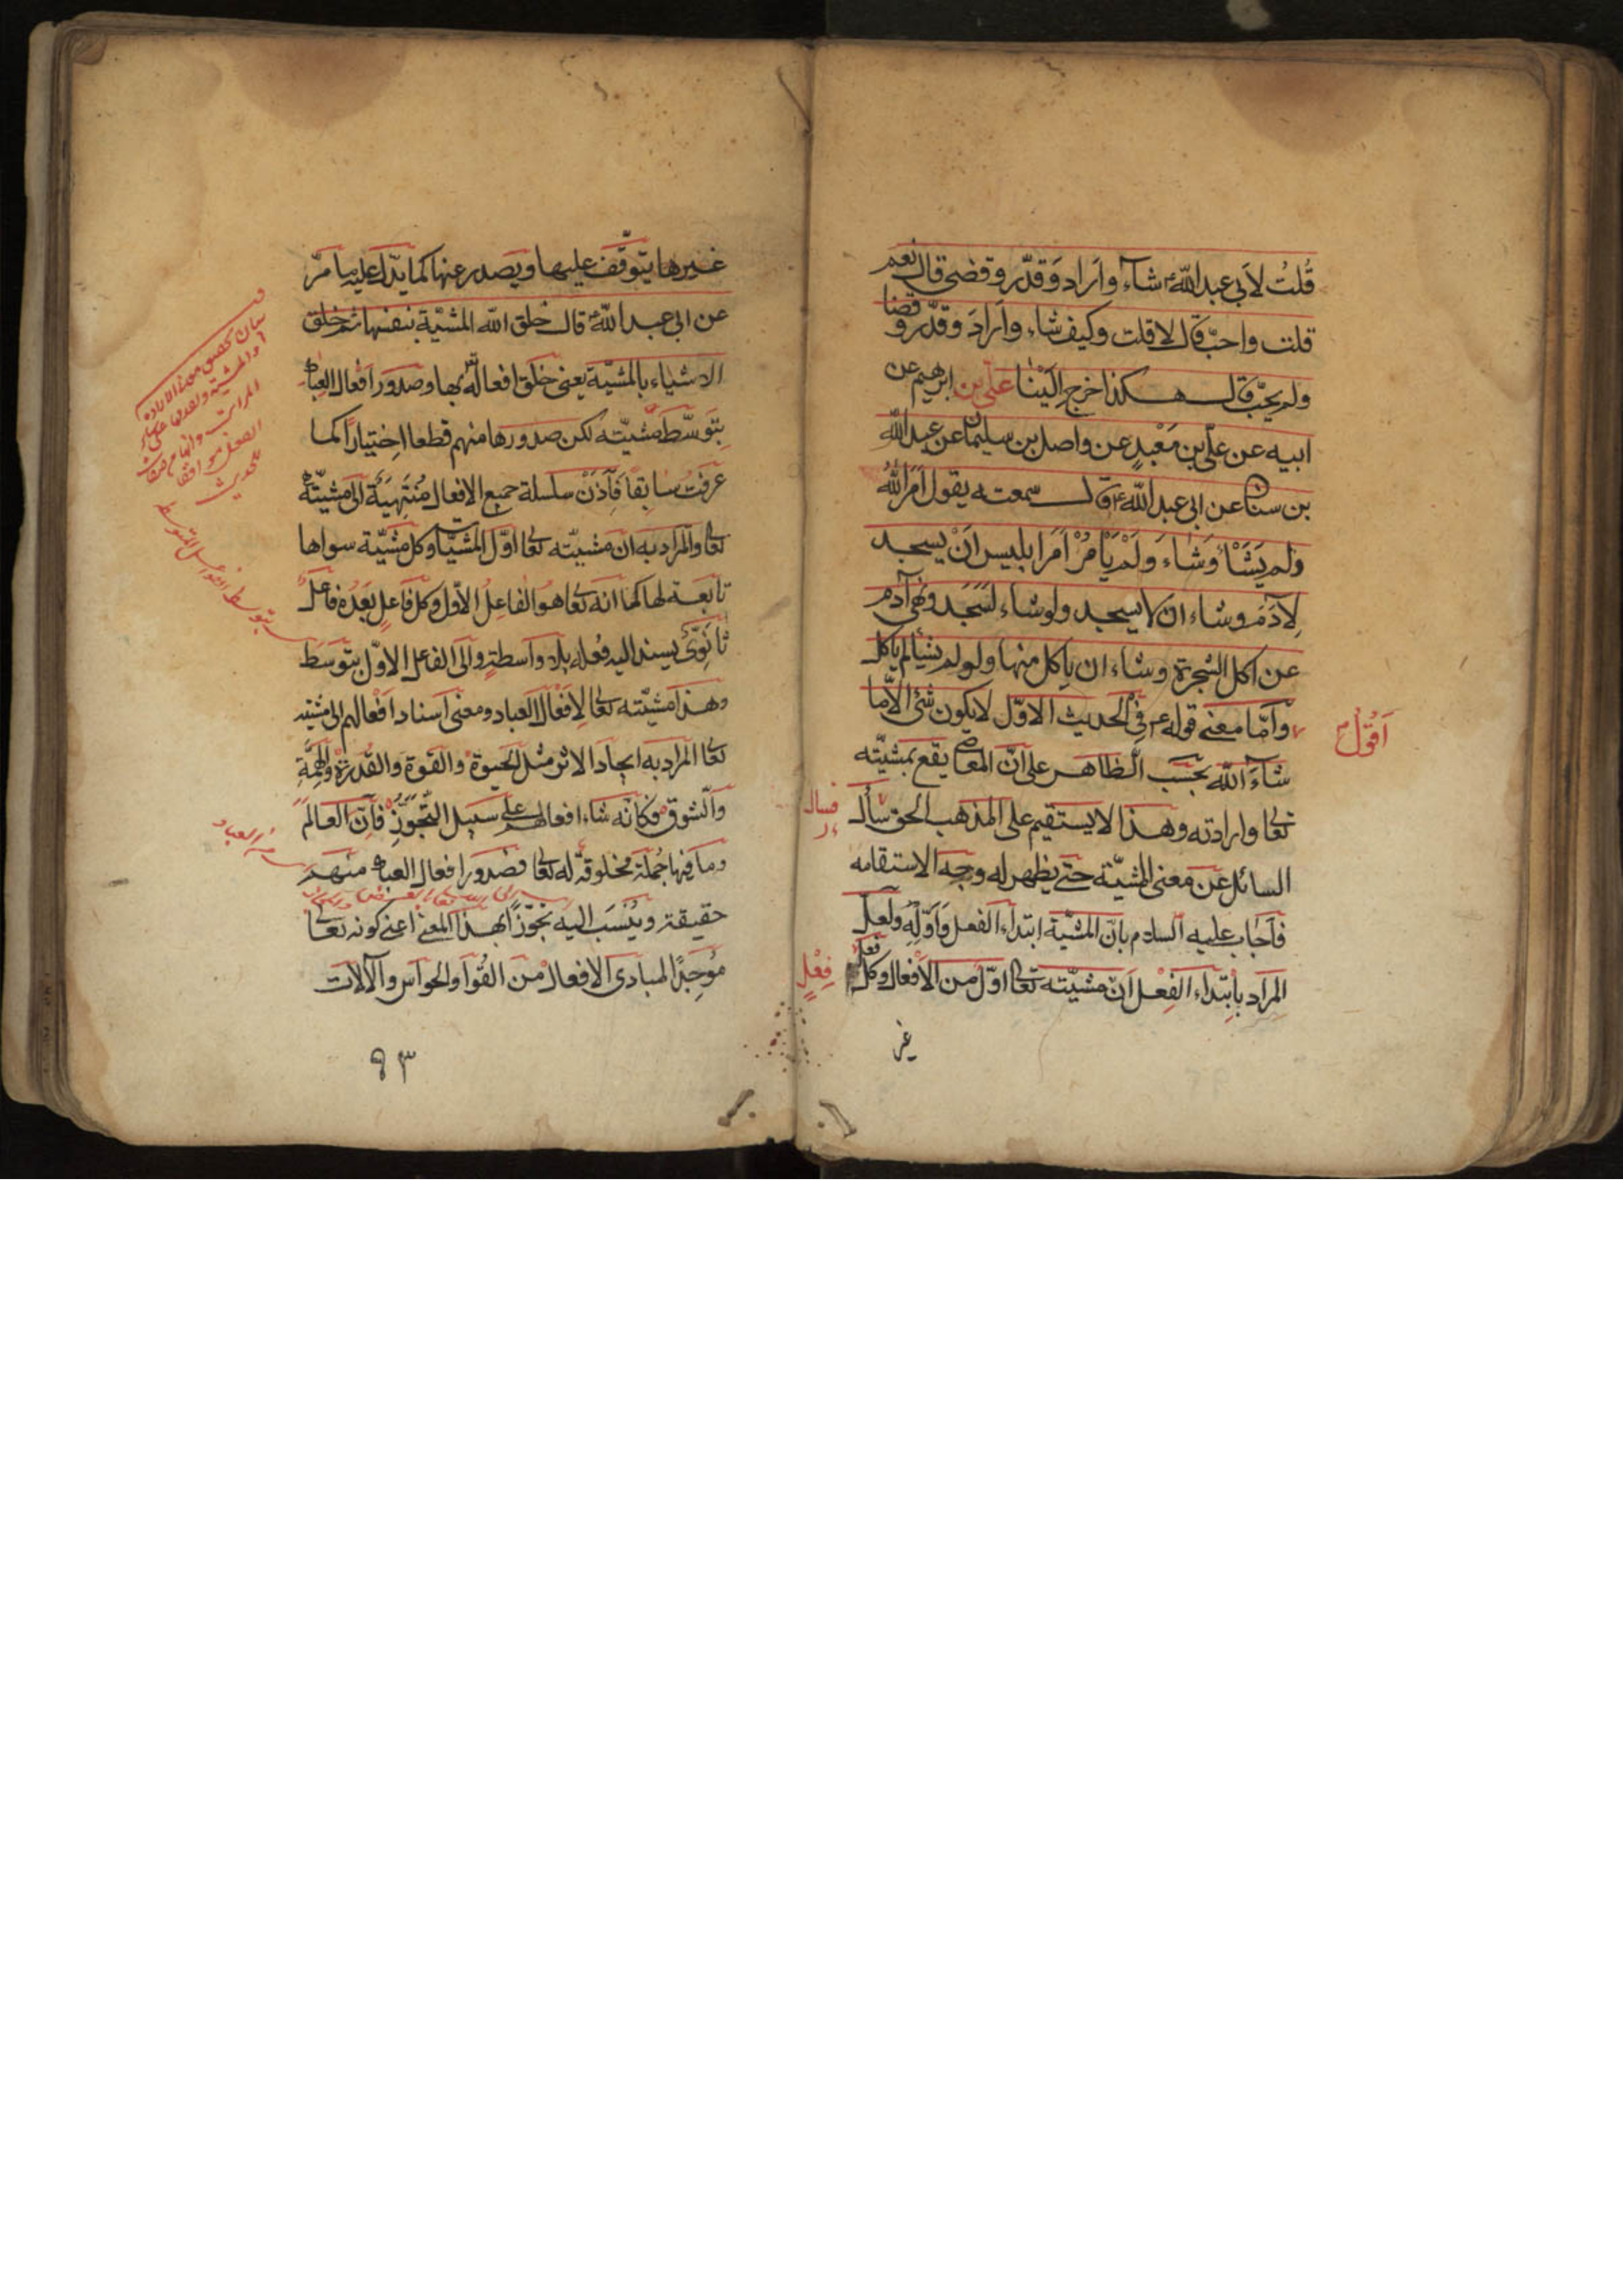 قُلتُ لاَبي عبد الله ع شآء واَراد وَقدّر وقضى قال نعم
قلت واحبّ قال لا قلت وكيف شاء واَرادَ وقدّر وقضا
ولم يحبّ قال هكذا خرج اِلَيْنا علىّ بن ابرهيم عن
ابيه عن علىّ بن مَعْبدٍ عن واصل بن سليمان عن عبد الله
بن سنان عن ابى عبد الله ع قال سمعته يقول اَمَرَ اللهُ
ولم يَشَأْ وَشاءَ وَلَمْ يَأمُرْ اَمَرَ ابليس اَنْ يسجد
لِآدَمَ وشاء ان لا يسجد ولو شاء لَسَجد ونهى آدم
عن اكل الشجرة وشاء ان ياكل منها ولو لم يشأ لم ياكل
اَقُولُ
وآمّا معنى قوله ع فى الحديث الاوّل لا يكون شئ الاّ ما
شاءَ اللّه بحَسَب الظاهر على انّ المعاصى يقع بمشيّته
تعا وارادته وهذا لا يستقيم على المذهب الحق سأل
فسال
السائل عن معنى المشيّة حتى يظهر له وجه الاستقامه
فاَجاب عليه السلام بانّ المشيّة ابتداء الفعل وَاَوّلهُ ولعل
المراد باِبتداء الفِعْل اَنّ مشيّته تعا اوّل من الاَفعال وكل فعل
فِعْلٍ
غير
غيرها يتوقّف عليها ويصدر عنها كما يدّل عليه ما مرّ
عن ابى عبد اللّه ع قال خلق الله المشيّة بنفسها ثم خلق
الاشياء بالمشيّة يعنى خلق افعاله بها وصدور افعال العباد
بتوسّط مشيّته لكن صدورها منهم قطعا اختيارًا كما
عرفت سابِقاً فَاِذَنْ سلسلة جميع الافعال مُنْتَهِيَة الى مشيّته
تعا والمراد به ان مشيّته تعا اوّل المشيّات وكل مشيّة سواها
تابعة لها كما انه تعا هو الفاعِلُ الاوّل وكل فاَعلٍ بعَدَه فاعل
ثانَوِىّ يسند اليه فعله بلا واسطةٍ والى الفاعل الاوّل بتوسّط
وهذا مشيّته تعا لِاَفْعال العباد ومعنى اسناد اَفْعالهم الى مشيته
تعا المراد به ايجاد الاثر مثل الحيوة والقوة والقدرة والهِمَّةِ
والشوق فكانّه شاء افعالهم على سبيل التّجوّزِ فاِنّ العالم
وما فيها جُملَة مخلوقة له تعا فصدور افعال العباد منهم
حقيقة ويُنْسَب اليه تجوّزًا بهذا المعنى اعنى كونه تعا
مُوجِدًا لمبادى الافعال من القُوا والحواس والآلات
٩٣